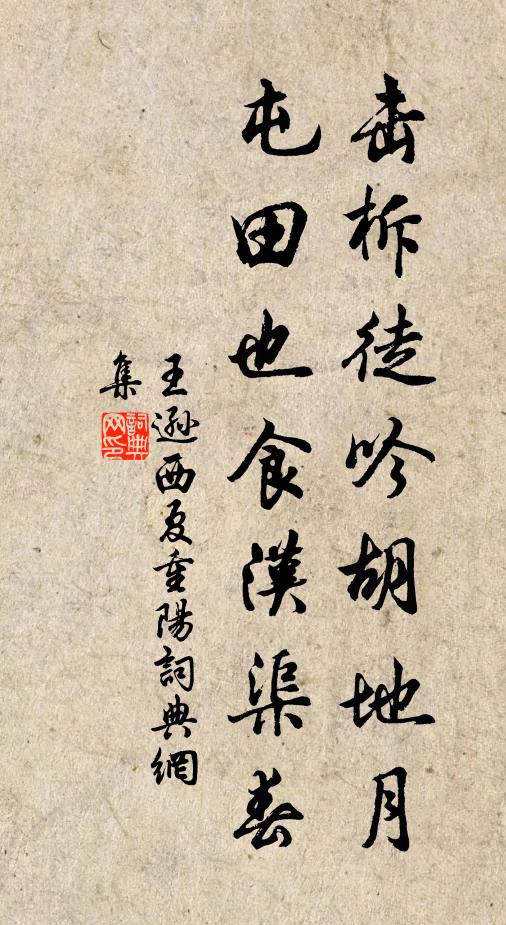 击柝徒吟胡地月
屯田也食漢渠春
王遜西夏重陽詞典網
集
詞典
网印